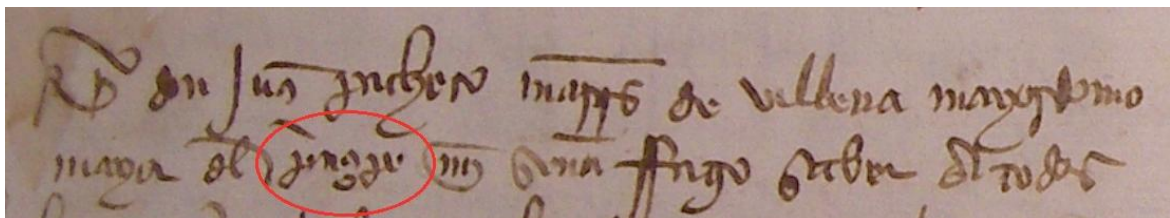 Yo don Juã pacheco marq̃s de villena mayordomo
mayor dl̃ p̃nçipe mj̃ señor ffago saber a todos